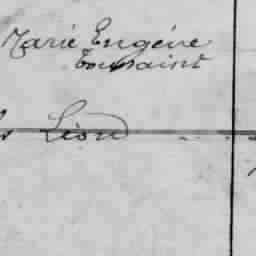 Marie Eugéne
Toussaint
Léon